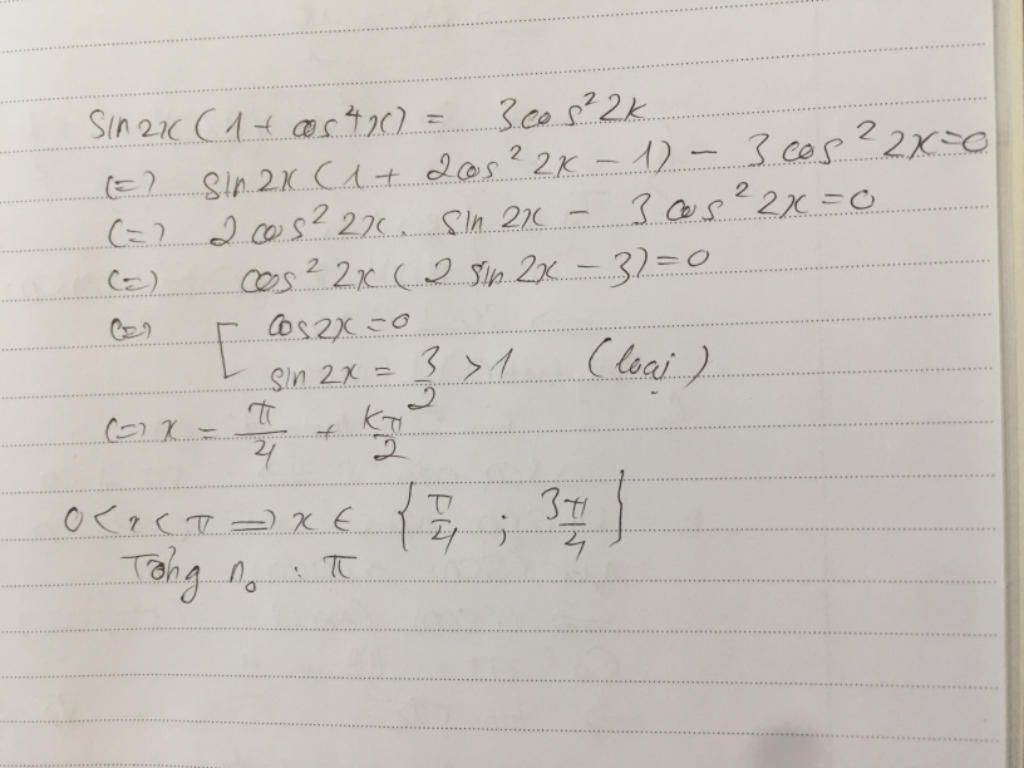 sin2x(1+cos⁴x) = 3cos²2x
(=) sin2x(1+2cos²2x-1)-3cos²2x=0
(=) 2cos²2x.sin2x-3cos²2x=0
(=) cos²2x(2sin2x-3)=0
(=) [ cos2x=0
sin2x = 3/2 >1 (loại)
(=) x = π/4 + kπ/2
0<x<π => x ∈ {π/4 ; 3π/4}
Tổng no : π